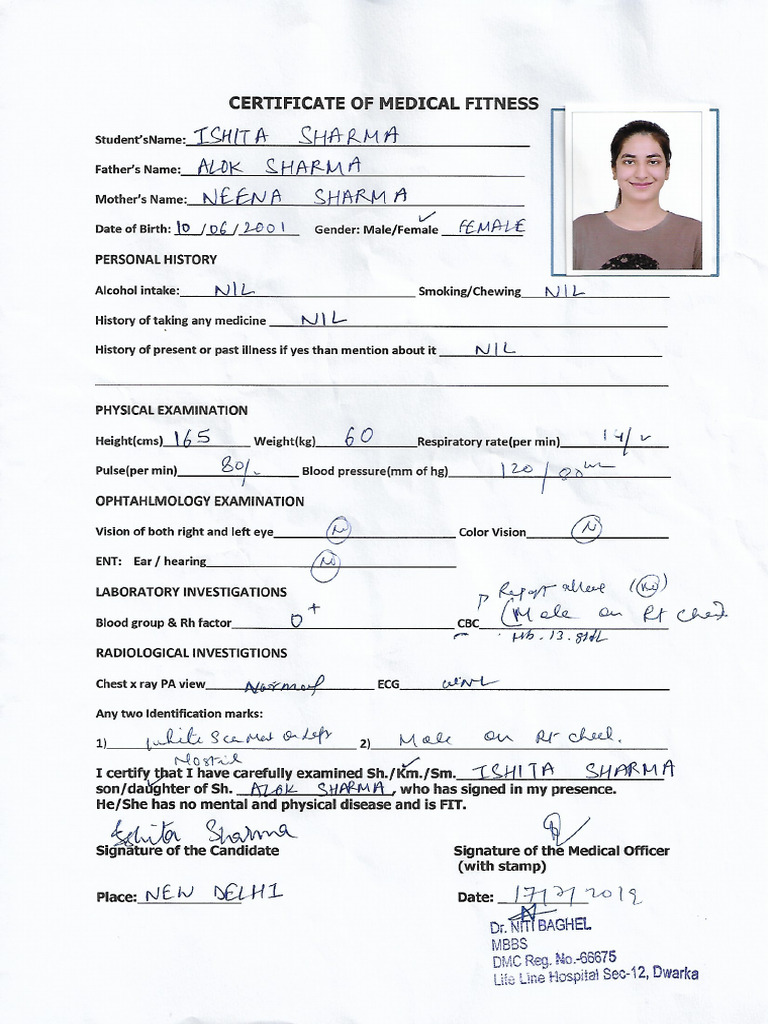 CERTIFICATE OF MEDICAL FITNESS
Student'sName: ISHITA SHARMA
Father's Name: ALOK SHARMA
Mother's Name: NEENA SHARMA
Date of Birth: 10/06/2001 Gender: Male/Female ✓ FEMALE
PERSONAL HISTORY
Alcohol intake: NIL Smoking/Chewing NIL
History of taking any medicine NIL
History of present or past illness if yes than mention about it NIL
PHYSICAL EXAMINATION
Height(cms) 165 Weight(kg) 60 Respiratory rate(per min)
Pulse(per min) 80/. Blood pressure(mm of hg) 120/
OPHTAHLMOLOGY EXAMINATION
Vision of both right and left eye Color Vision
ENT: Ear / hearing
LABORATORY INVESTIGATIONS
Blood group & Rh factor O+ CBC (Mole on Rt cheek
Hb. 13.
RADIOLOGICAL INVESTIGTIONS
Chest x ray PA view Normal ECG WNL
Any two Identification marks:
1) White on Left Nostril 2) Mole on Rt cheek.
I certify that I have carefully examined Sh./Km./Sm. ISHITA SHARMA
son/daughter of Sh. ALOK SHARMA, who has signed in my presence.
He/She has no mental and physical disease and is FIT.
Ishita Sharma
Signature of the Candidate Signature of the Medical Officer
(with stamp)
Place: NEW DELHI Date: 17/7/2019
Dr. NITI BAGHEL
MBBS
DMC Reg. No.-66675
Life Line Hospital Sec-12, Dwarka